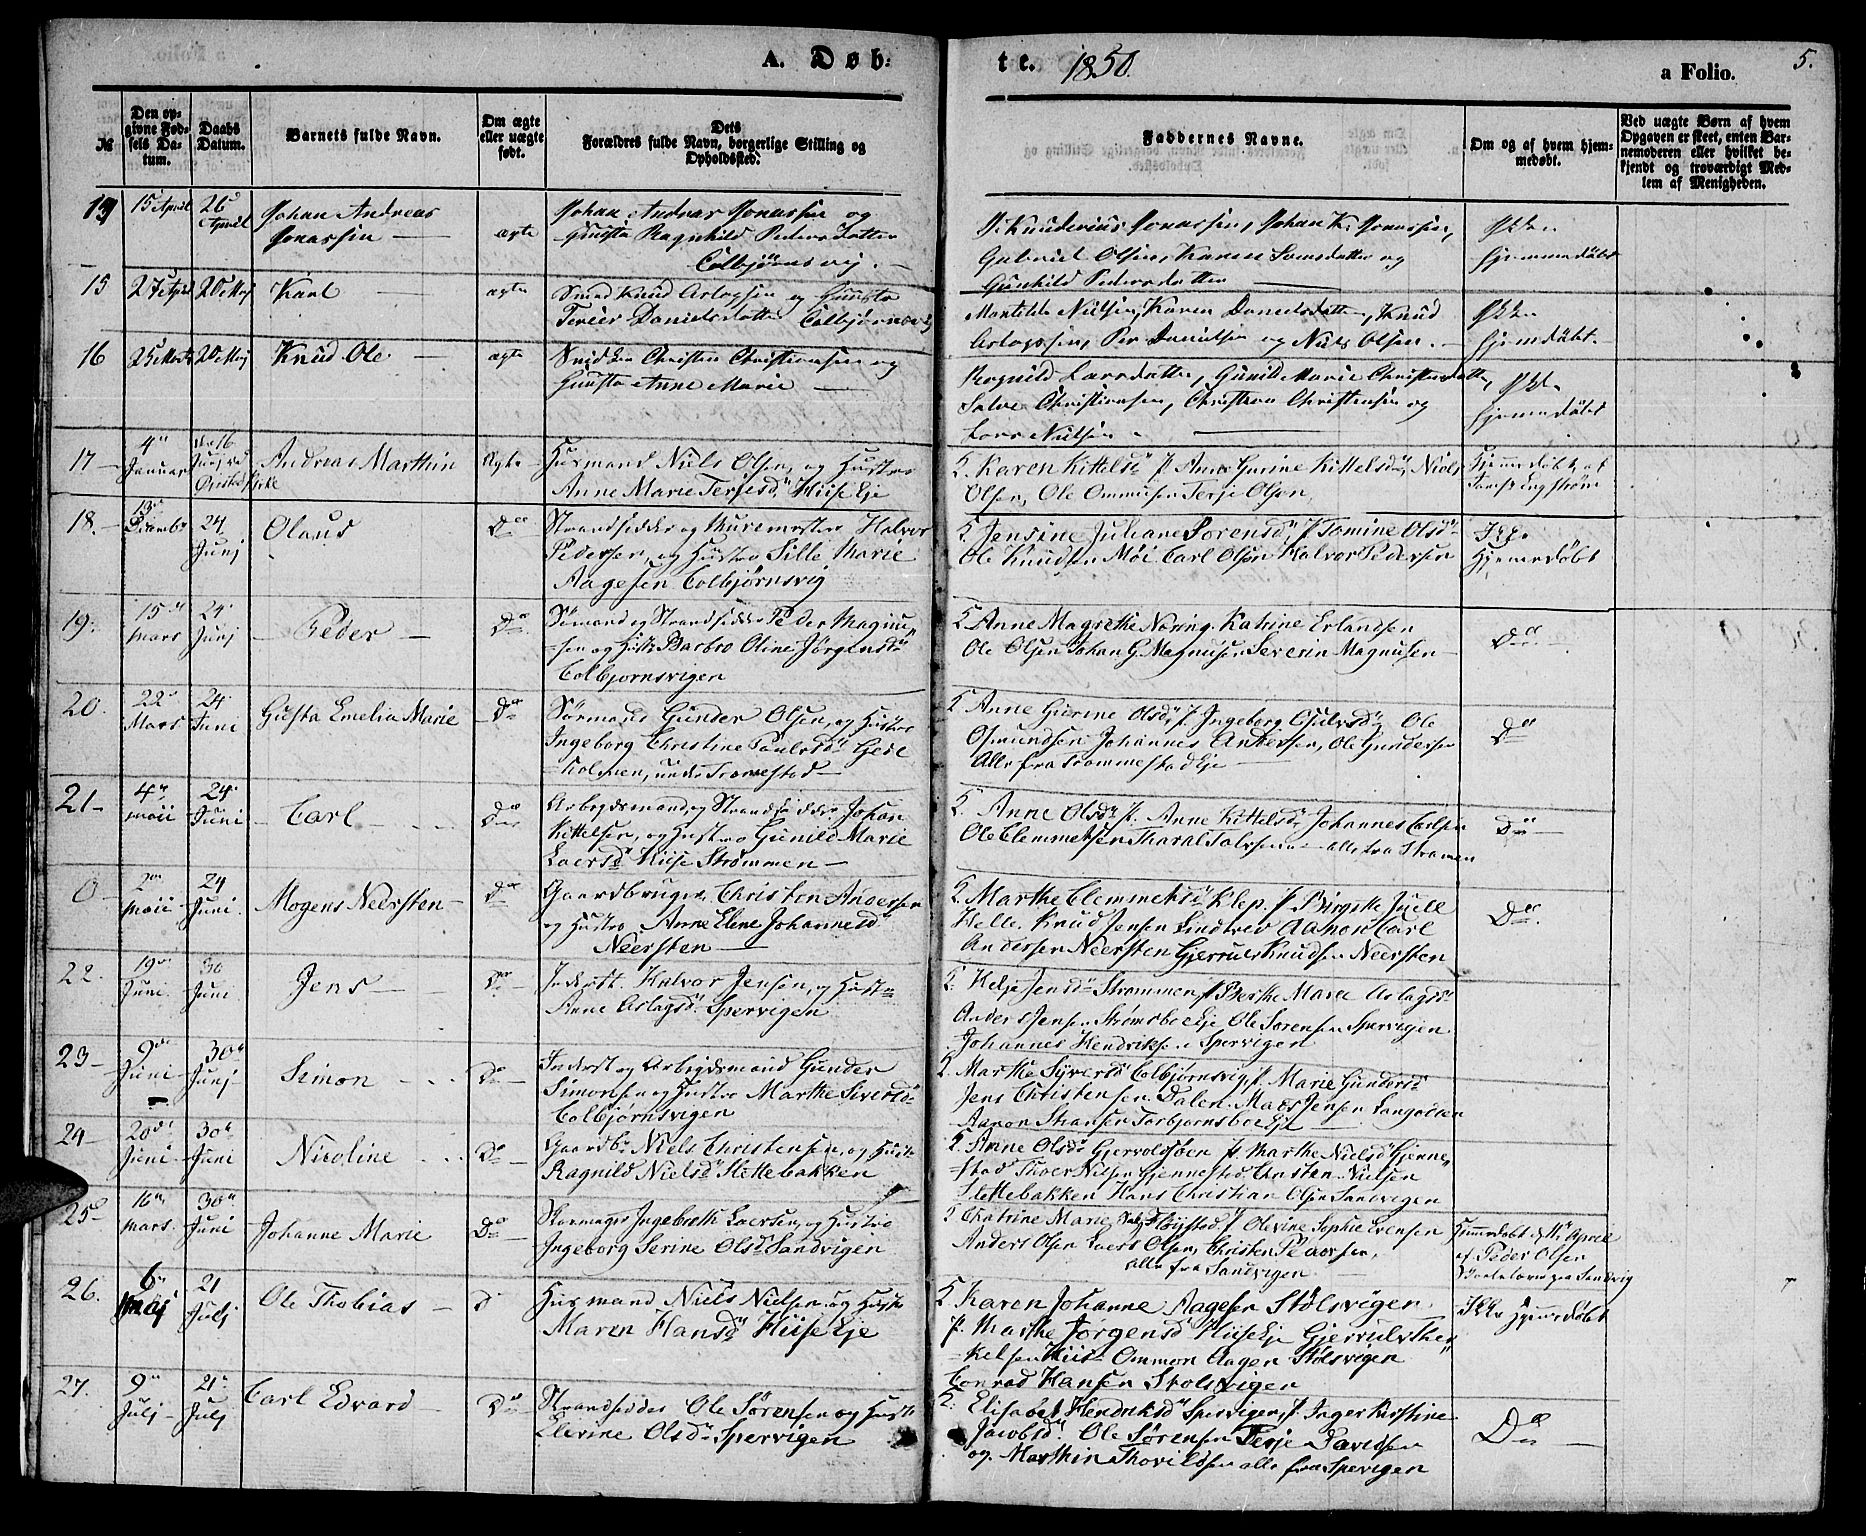 A. Døb=
te. 1850.
a Folio.
5.
№
Den op-
givne Fød-
sels Da-
tum.
Daabs
Datum.
Barnets fulde Navn.
Om ægte
eller uægte
født.
Dets
Forældres fulde Navn, borgerlige Stilling og
Opholdssted.
Faddernes Navne.
Om og af hvem hjem-
medøbt.
Ved uægte Børn af hvem
Opgaven er skeet, enten Bar-
nemoderen eller hvilket be-
kjendt og troværdigt Med-
lem af Menigheden.
15 April
26
April
Johan Andreas
Jonassen
ægte
Johan Andreas Jonassen og
Hustro Ragnhild Pedersdatter
Colbjörnsvig.
Johan K. Jonassen,
Gabriel Olsen, Karen
Gunhild Pedersdatter
Ikke
hjemmedöbt
15
27 April
20 Mai
Karl
ægte
Knud Aslagsen og Hustro
Daniels datter Colbjörnsvig
Nielsen, Karen Danielsdatter, Knud
Aslagsen, Per Danielsen og Niels Olsen.
Ikke
hjemdöbt.
16
25 Marts
20 Mai
Knud Ole
ægte
Christen Christensen og
Hustro Anne Marie
Ragnild Larsdatter, Gunild Marie Christensdatter,
Salve Christiansen, Christian Christensen og
Lars Nielsen
Ikke
hjemmedöbt
17
4
Januar
16
Juni
Andreas Marthin
Ægte
Husmand Niels Olsen, og Hustro
Anne Marie Terjesd. Hiise Eje
5. Karen Kittelsd. f. Anne Gurine Kittelsd. Niels
Olsen, Ole Ommusen Terje Olsen,
Hjemmedöbt af
Engström
18.
13
Decembr
24
Junj
Olaus
Do
Strandsidder og Muurmester Halvor
Pedersen, og Hustro Sille Marie
Aagesen Colbjørnsvig
5 Jensine Juliane Sørensd. f. Tomine Olsd.
Ole Knudsen Möi Carl Olsen Halvor Pedersen
Ikke
Hjemmedöbt
19.
15
Mars
24
Junj
Peder
Do
Sömand og Strandsidder Peder Magnu
=sen og Hust: Barbro Oline Jørgensd.
Colbjornsvigen
5 Anne Magrethe Næring. Katrine Erlandsen
Ole Olsen Johan G. Magnusen Severin Magnusen
Do
20.
22
Mars
24
Juni
Gusta Emelia Marie
Do
Sørmand Gunder Olsen, og Hustro
Ingeborg Christine Paulsd. Gede
=holmen, under Tromestad
5 Anne Gurine Olsd. f. Ingeborg Ole
Osmundsen Johannes Andersen, Ole Gundersen
Alle fra Trommestad Eje
Do
21
4
Maii
24
Juni
Carl
Do
Arbeidsmand og Strandsidder Johan
Kittelsen, og Hustro Gunild Marie
Laersd. Hiise Strømmen
5. Anne Olsd. f. Anne Kittelsd. Johannes Carlsen
Ole Clemmetsen Tharal alle fra Strømen
Do
0
2
Maii
24
Juni
Mogens Neersten
Do
Gaardbruger Christen Andersen
og Hustro Anne Elene Johannesd.
Neersten
5. Marthe Clemmetsd. Klep. f. Birgithe Juell
Helle. Knud Jensen Lindtved Aanon Carl
Andersen Neersten Gjerruls Knudsen Neersten
Do
22.
19
Juni
30
Juni
Jens
Do
Inderst. Halvor Jensen, og Hustro
Anne Aslagsd. Spervigen
5. Helje Jensd. Strømmen, f. Berthe Marie Aslagsd.
Anders Jensen Strømsboe Eje Ole Sørensen Spervigen
Johannes Hendriksen Spervigen
23
9
Juni
30
Junj
Simon
Do
Inderst og Arbeidsmand Gunder
Simonsen og Hustro Marthe Siversd.
Colbjornsvigen
5. Marthe Siversd. Colbjørnsvig, f. Marie Gundersd.
Jens Christensen Dalen. Mads Jensen Langodsen
Aanon Torbjornsboe Eje
24
20
Juni
30
Juni
Nicoline
Do
Gaardbr. Niels Christensen, og Hustr
Ragnild Nielsd. Slettebakken
5. Anne Olsd. Gjervoldsøen f. Marthe Nielsd. Gjenne
=stad Thoer Nielsen Gjennestad Christen Nielsen
Slettebakken Hans Christian Olsen Sandvigen
25
16
Mars
30
Juni
Johanne Marie
Do
Skomager Ingebreth Laersen, og Hustro
Ingeborg Serine Olsd. Sandvigen
5 Chatrine Marie Fløystad f. Olevine Sophie Evensen
Anders Olsen Laers Olsen, Christen Pedersen,
alle fra Sandvigen
Hjemmedøbt April
af Peder Olsen
Sandvig
26.
6
Maj
21
Julj
Ole Thobias
Do
Husmand Niels Nielsen, og Hustro
Maren Hansd. Hiise Eje
5 Karen Johanne Aagesen Stølsvigen,
f. Marthe Jörgensd. Hiise Eje Gjerruls Ther
=kelsen Hiis Ommon Aagen Stølsvigen
Conrad Hansen Stolsvigen
Ikke Hjemmedøbt
27.
9
Julj
21
Julj
Carl Edvard
Do
Strandsidder Ole Sørensen og Hustr
Elevine Olsd. Spervigen
5. Elisabet Hendriksd. Spervigen, f. Inger Kirstine
Jacobsd. Ole Sørensen Terje Davidsen
og Marthin Thorildsen alle fra Spervigen
Do